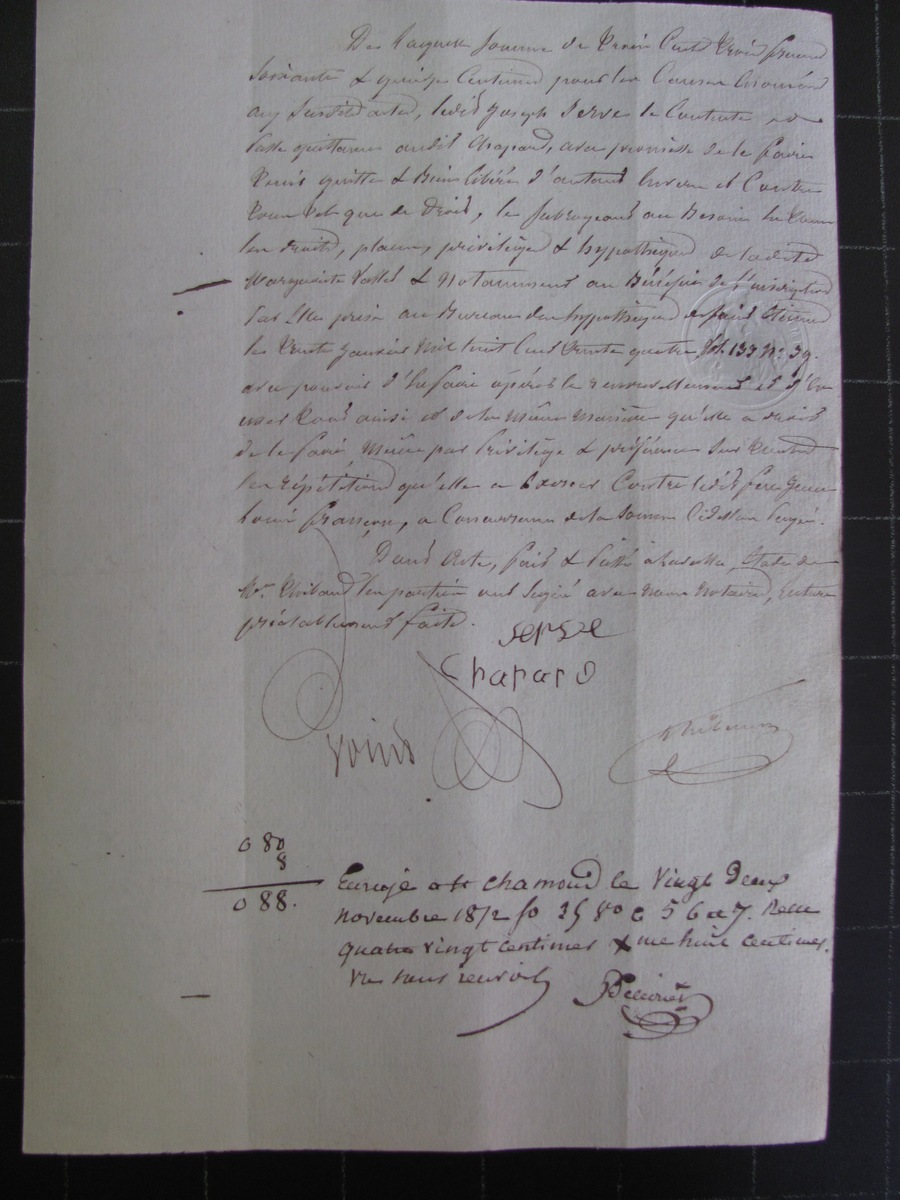 De laquelle somme de trois cents trois francs
soixante & quinze centimes pour les causes énoncées
aux susdit acte, ledit Joseph Serve le contente et
passe quittance audit Chapard, avec promesse de le faire
tenir quitte & bien libéré d'autant envers et contre
tous tel que de droit, le subrogeant au besoin en tous
les droits, places, privilèges & hypothèques de ladite
Marguerite & Notamment au Bénéfice de l'inscription
par elle prise au Bureau des hypothèques de Saint Etienne
le trente janvier mil huit cent trente quatre Vol. 133 N° 39.
avec pouvoir d'en faire opérer le renouvellement et d'en
user tout ainsi et de la même manière qu'elle a droit
de le faire même par privilège & préférence sur toutes
les répétitions qu'elle a à exercer contre ledit
Louis Françon, à concurrence de la somme ci dessus payée.
Dont acte, fait & passé Etude de
Me Thibaud les parties ont signé avec nous Notaires, lecture
préalablement faite.
Serve
Chapard
0 80
8
0 88.
Enregé à St Chamond le Vingt deux
novembre 1872 fo 35 Vo c 5 6 et 7. Reçu
quatre vingt centimes & me huit centimes.
sans renvoi